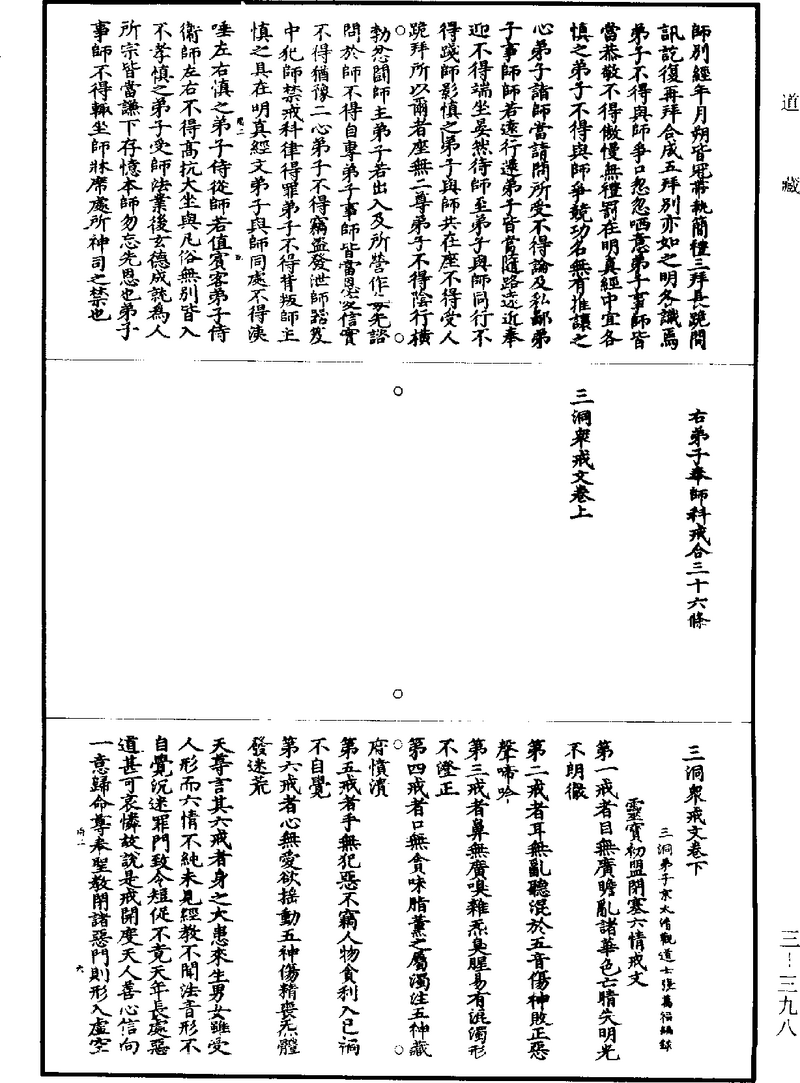 道藏
師別經年月朔皆冠帶執簡禮三拜長跪問
訊訖復再拜合成五拜別亦如之明各識焉
弟子不得與師爭口忿忿哂意弟子事師皆
當恭敬不得傲慢無禮罰在明真經中宜各
慎之弟子不得與師爭競功名無有推讓之
心弟子諸師當請問所受不得論及私鄙弟
子事師師若遠行還弟子皆當隨路遠近奉
迎不得端坐晏然待師至弟子與師同行不
得踐師影慎之弟子與師共在座不得受人
跪拜所以爾者座無二尊弟子不得陰行橫
勃忿鬭師主弟子若出入及所營作一一先諮
問於師不得自專弟子事師皆當恩次信實
不得猶豫二心弟子不得竊盜發泄師器笈
中犯師禁戒科律得罪弟子不得背叛師主
慎之具在明真經文弟子與師同處不得洟
唾左右慎之弟子侍從師若值賓客弟子侍
衞師左右不得高抗大坐與凡俗無別皆入
不孝慎之弟子受師法業後玄德成就為人
所宗皆當謙下存憶本師勿忘先恩也弟子
事師不得輒坐師牀席處所神司之禁也
右弟子奉師科戒合三十六條
三洞眾戒文卷上
三洞眾戒文卷下
三洞弟子京太清觀道士張萬福編錄
靈寶初盟閉塞六情戒文
第一戒者目無廣瞻亂諸華色亡睛失明光
不朗徹
第二戒者耳無亂聽混於五音傷神敗正惡
聲啼吟
第三戒者鼻無廣嗅雜炁臭腥易有混濁形
不澄正
第四戒者口無貪味脂薰之屬濁注五神藏
府憒潰
第五戒者手無犯惡不竊人物貪利入己禍
不自覺
第六戒者心無愛欲搖動五神傷精喪炁體
發迷荒
天尊言其六戒者身之大患來生男女雖受
人形而六情不純未見經教不聞法音形不
自覺沉迷罪門致令短促不竟天年長處惡
道甚可哀憐故說是戒開度天人善心信向
一意歸命尊奉聖教閉諸惡門則形入虛空
三-三九八